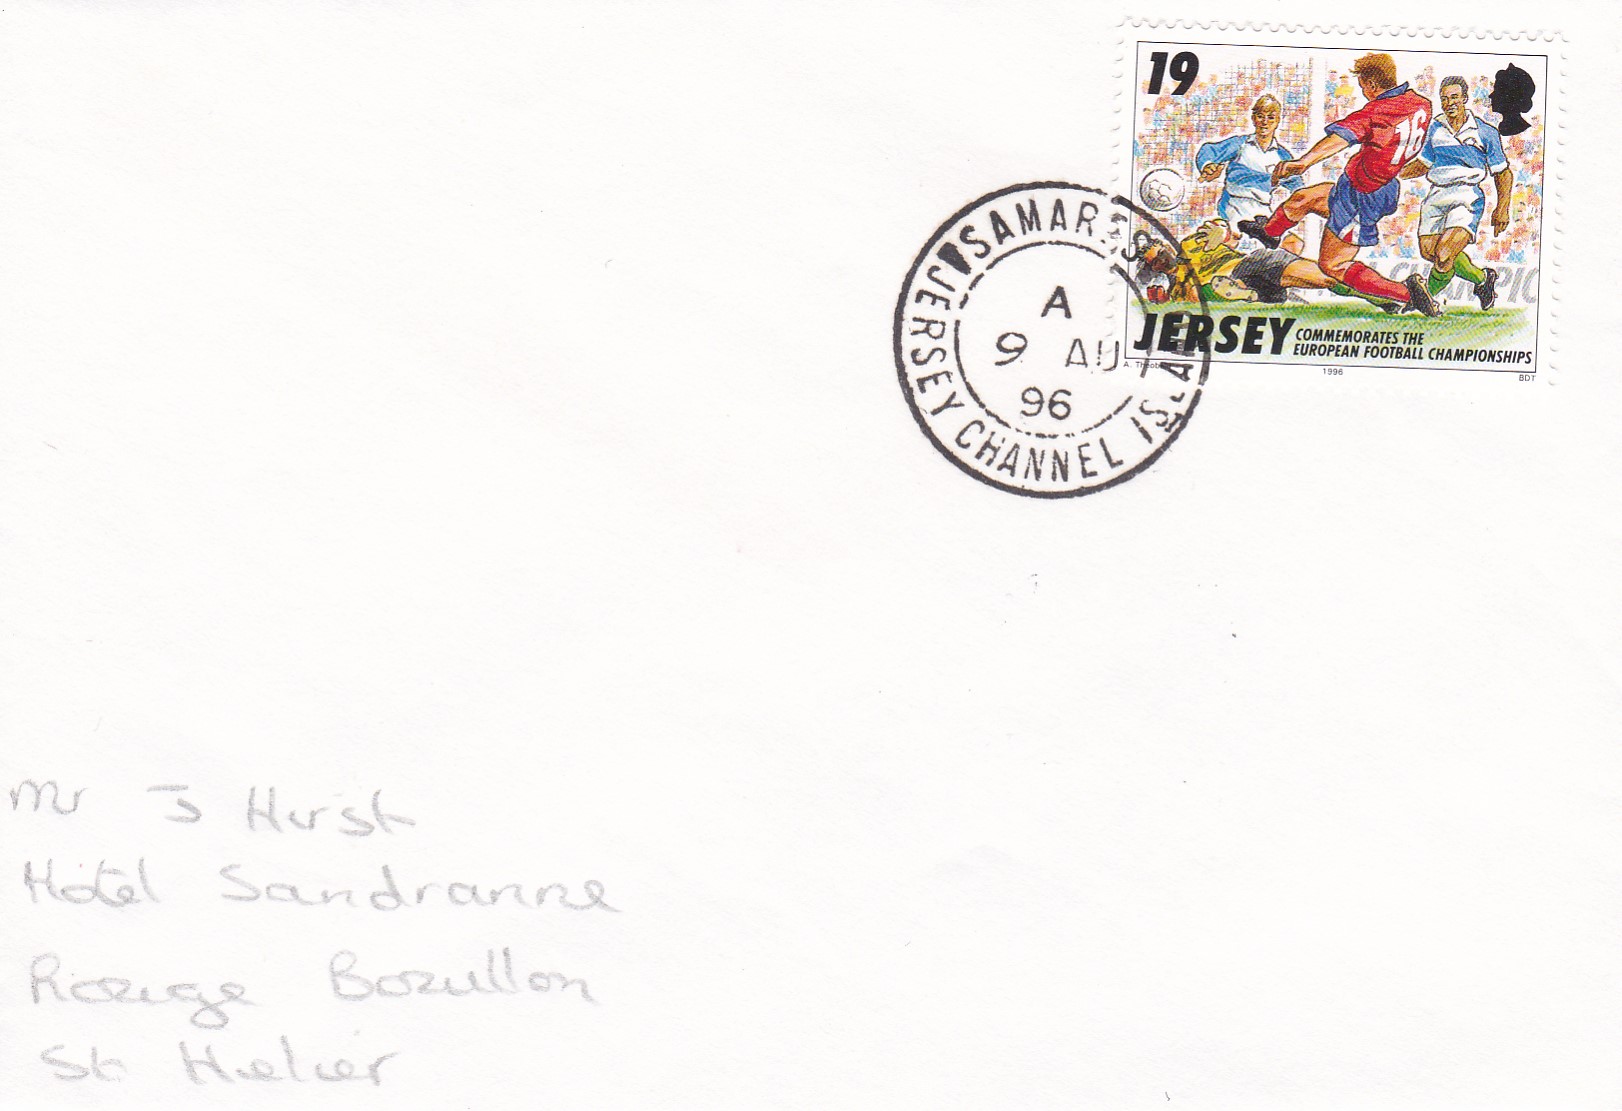 19
16
JERSEY COMMEMORATES THE
EUROPEAN FOOTBALL CHAMPIONSHIPS
1996
BDT
SAMARES
JERSEY CHANNEL ISLANDS
A
9 AU
96
Mr J Hurst
Hotel Sandranne
Rouge Bouillon
St Helier